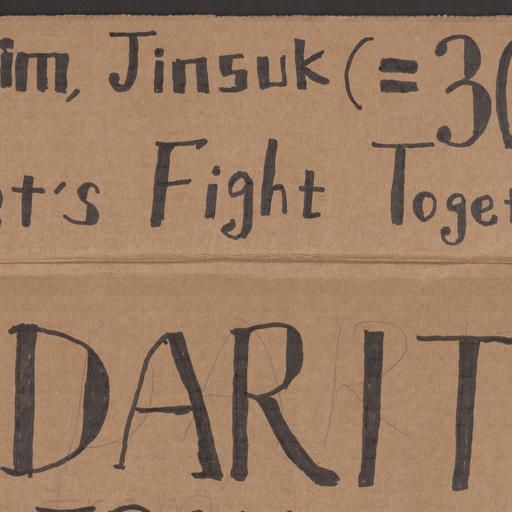 im, Jinsuk (=30
et's Fight Toget
DARIT